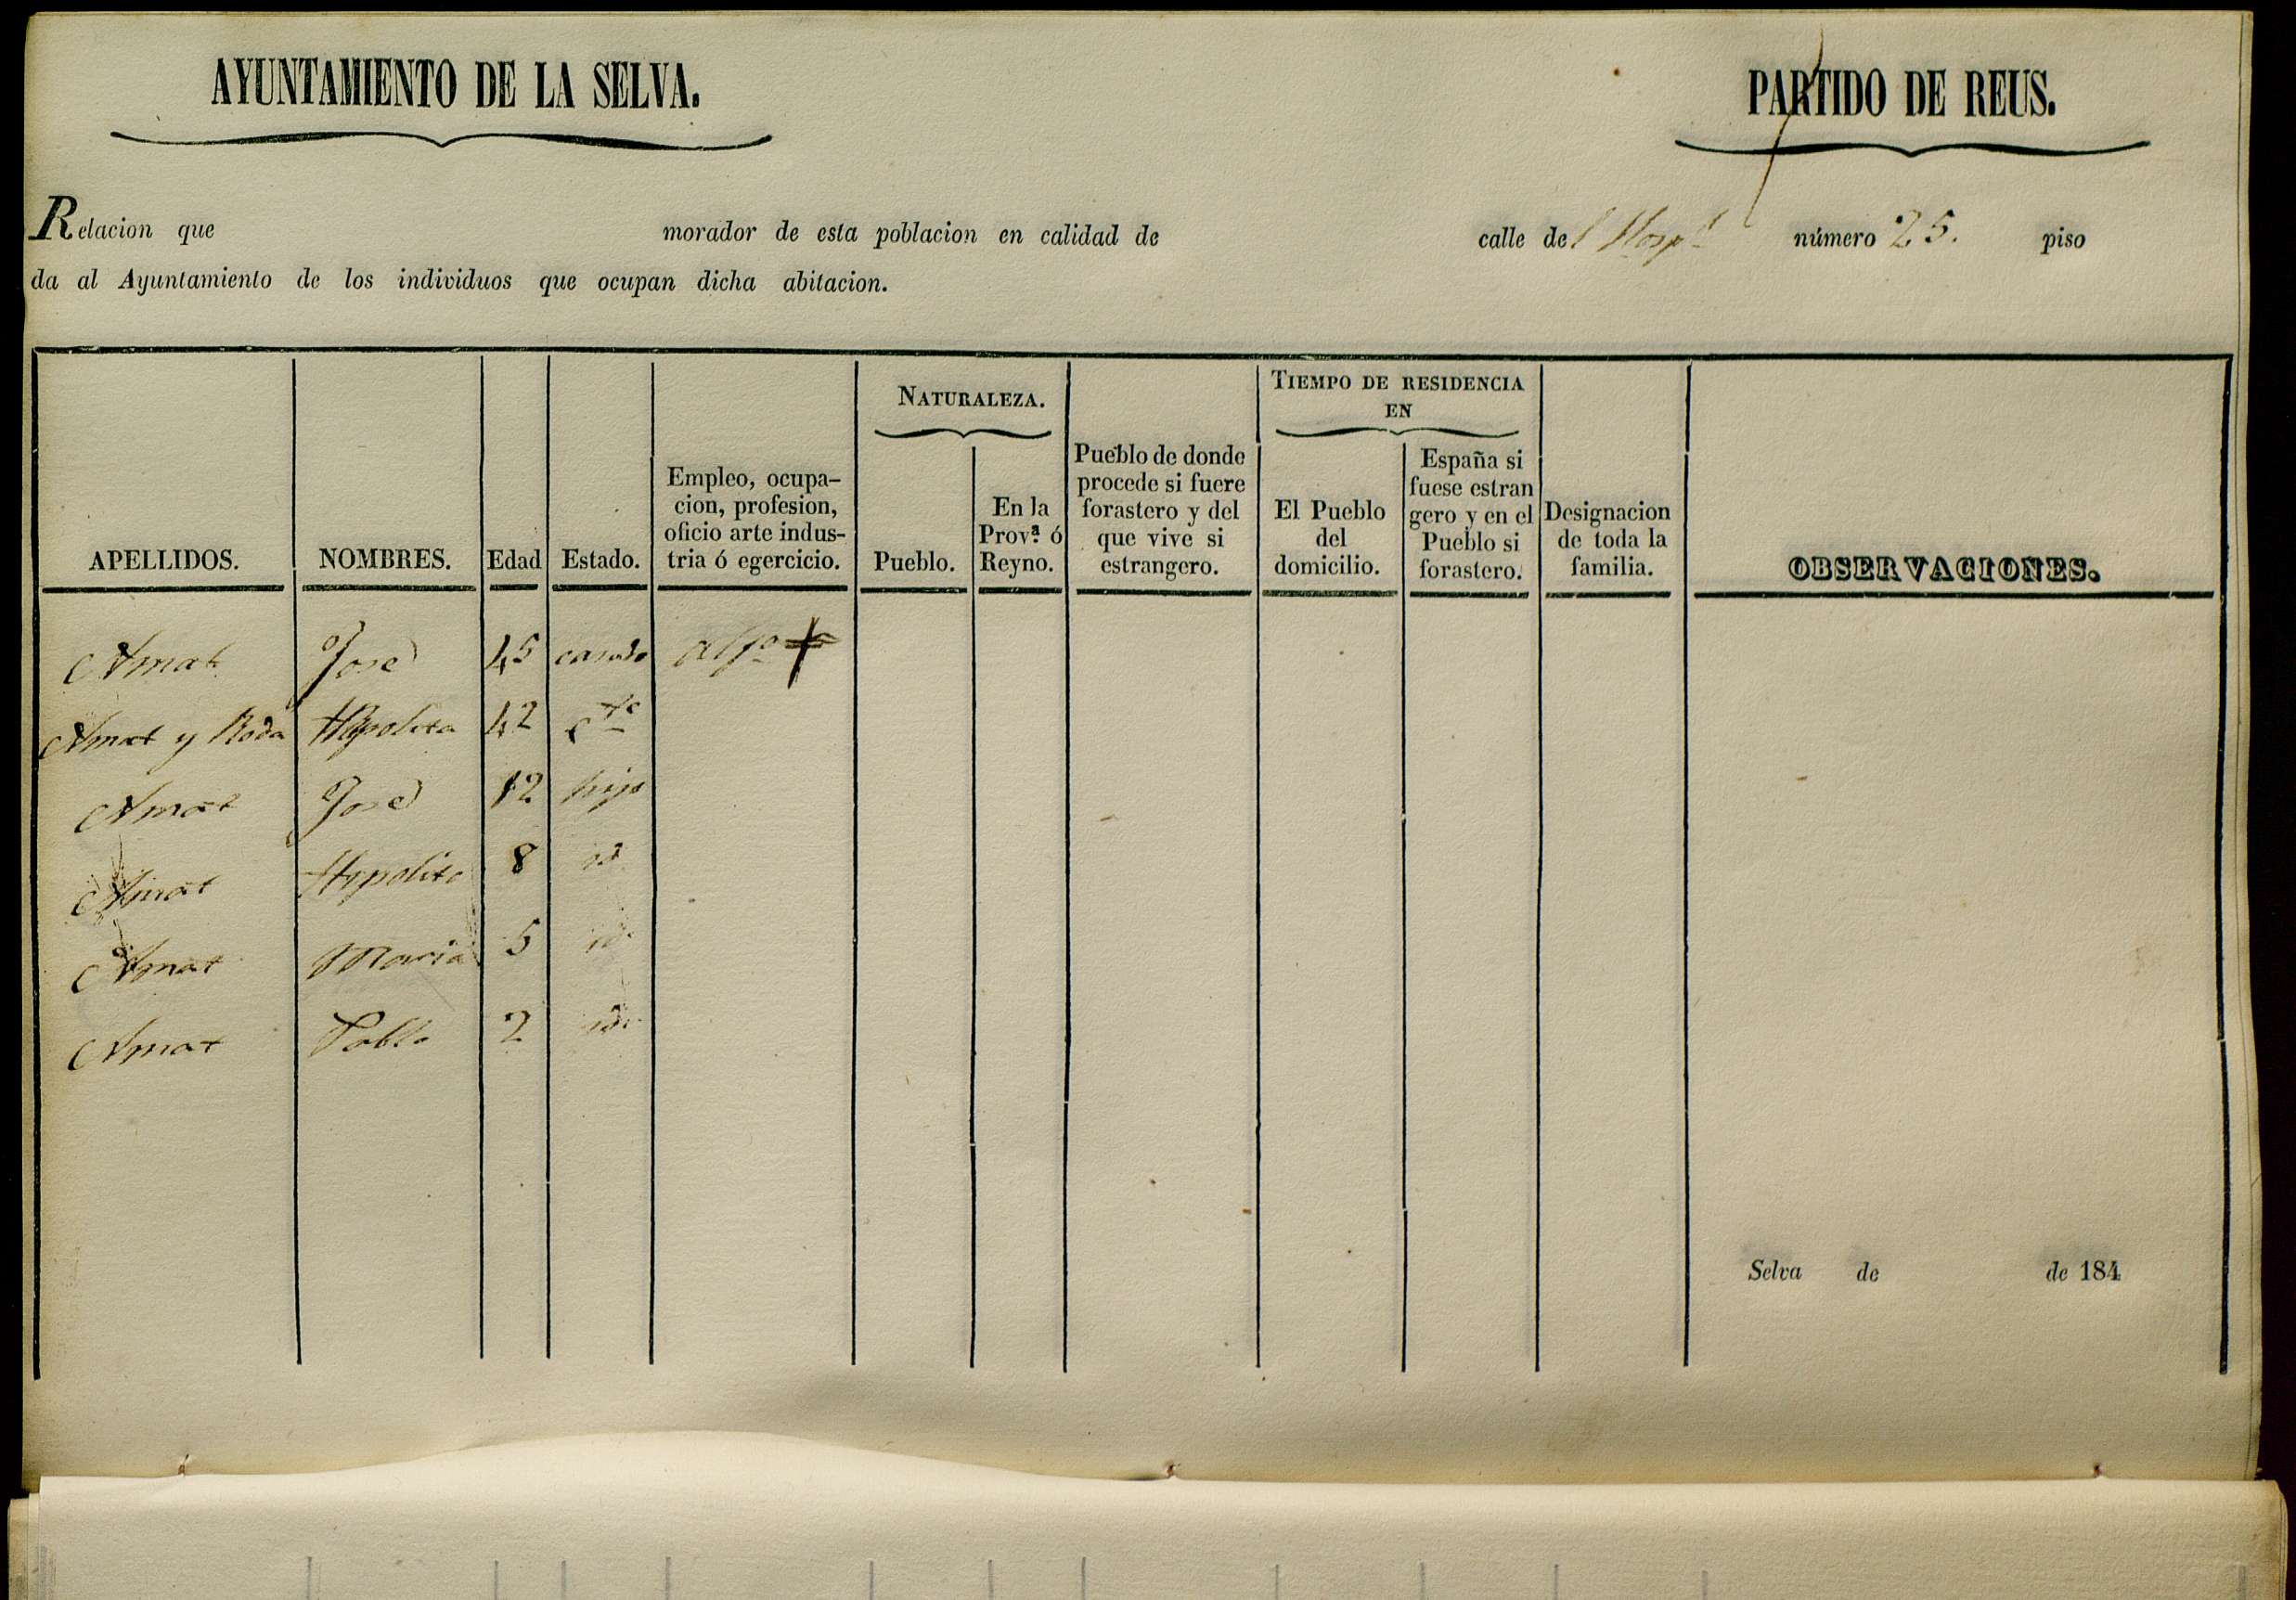 AYUNTAMIENTO DE LA SELVA.
PARTIDO DE REUS.
Relacion que morador de esta poblacion en calidad de calle del Hospl número 25. piso
da al Ayuntamiento de los individuos que ocupan dicha abitacion.
APELLIDOS.
NOMBRES.
Edad
Estado.
Empleo, ocupa-
cion, profesion,
oficio arte indus-
tria ó egercicio.
NATURALEZA.
Pueblo.
En la
Prov.ª ó
Reyno.
Pueblo de donde
procede si fuere
forastero y del
que vive si
estrangero.
TIEMPO DE RESIDENCIA
EN
El Pueblo
del
domicilio.
España si
fuese estran
gero y en el
Pueblo si
forastero.
Designacion
de toda la
familia.
OBSERVACIONES.
Amat José 45 casado
Amat y Roda Hypolita 42
Amat José 12 hijo
Amat Hypolito 8 id
Amat Maria 5 id.
Amat Pablo 2 id.
Selva de de 184